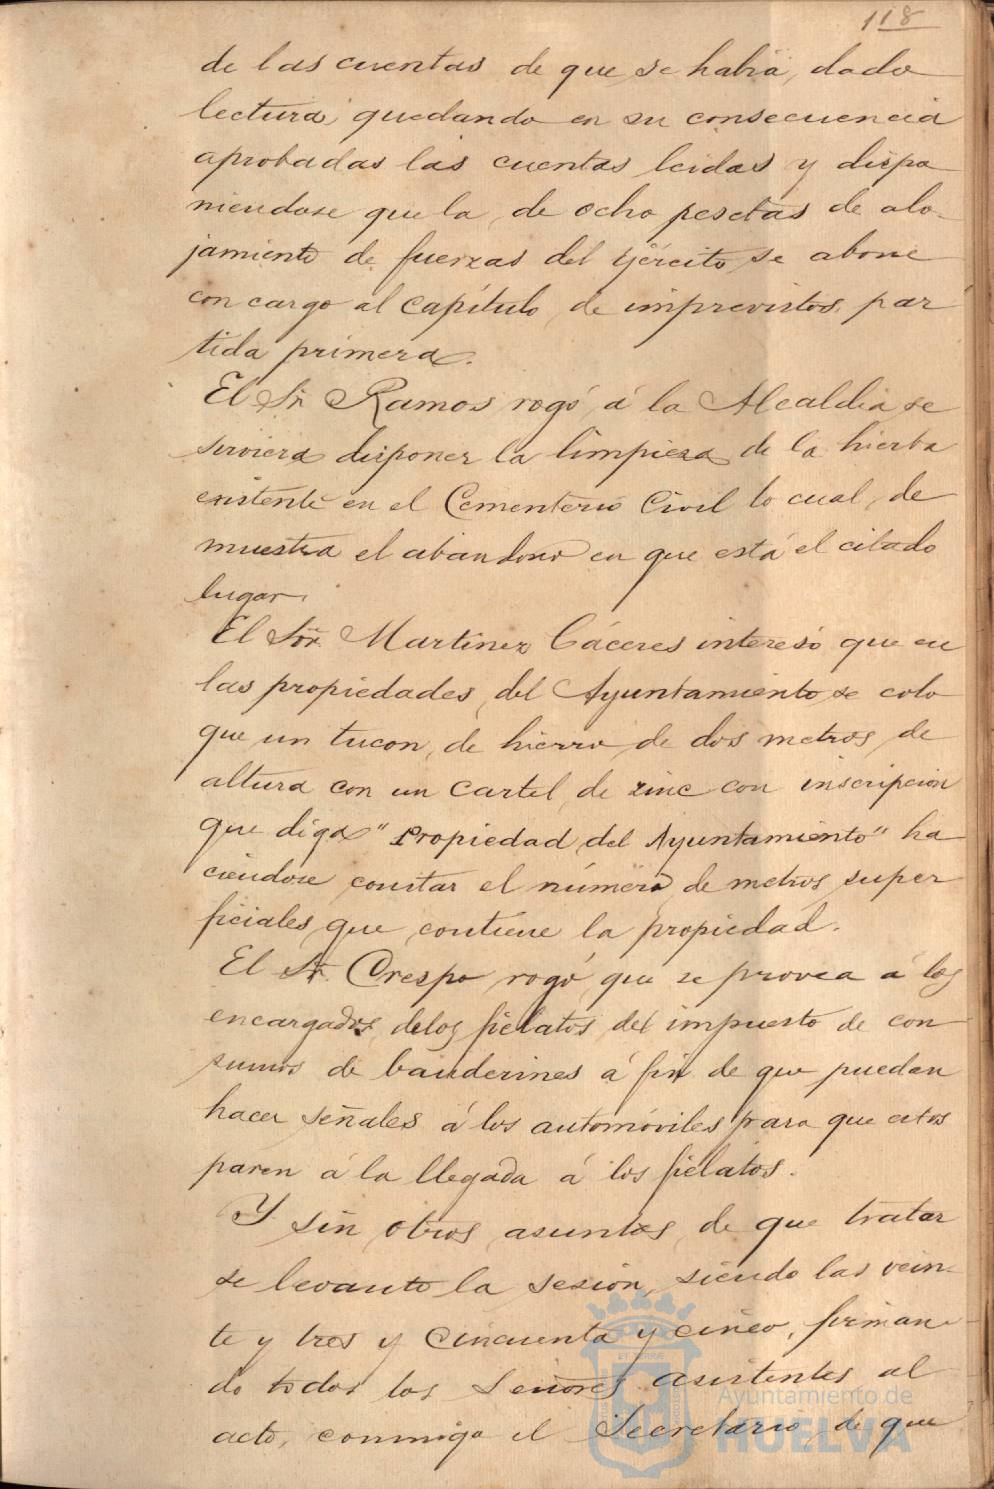 118
de las cuentas de que se había dado
lectura, quedando en su consecuencia
aprobadas las cuentas leidas y dispo
niendose que la de ocho pesetas de alo-
jamiento de fuerzas del Ejército se abone
con cargo al Capítulo de imprevistos, par
tida primera.
El Sr. Ramos rogó á la Alcaldía se
serviera disponer la limpieza de la hierba
existente en el Cementerio Civil lo cual de
muestra el abandono en que está el citado
lugar.
El Sor. Martinez Cáceres interesó que en
las propiedades del Ayuntamiento se colo
que un tucon de hierro de dos metros de
altura con un cartel de zinc con inscripción
que diga "Propiedad del Ayuntamiento" ha
ciendose constar el número de metros super
ficiales que contiene la propiedad.
El Sr. Crespo rogó que se provea á los
encargados de los fielatos del impuesto de con
sumos de banderines á fin de que puedan
hacer señales á los automóviles para que estos
paren á la llegada á los fielatos.
Y sin otros asuntos de que tratar
se levanto la sesión, siendo las vein-
te y tres y cincuenta y cinco, firman-
do todos los Señores asistentes al
acto, conmigo el Secretario de que
Ayuntamiento de
HUELVA